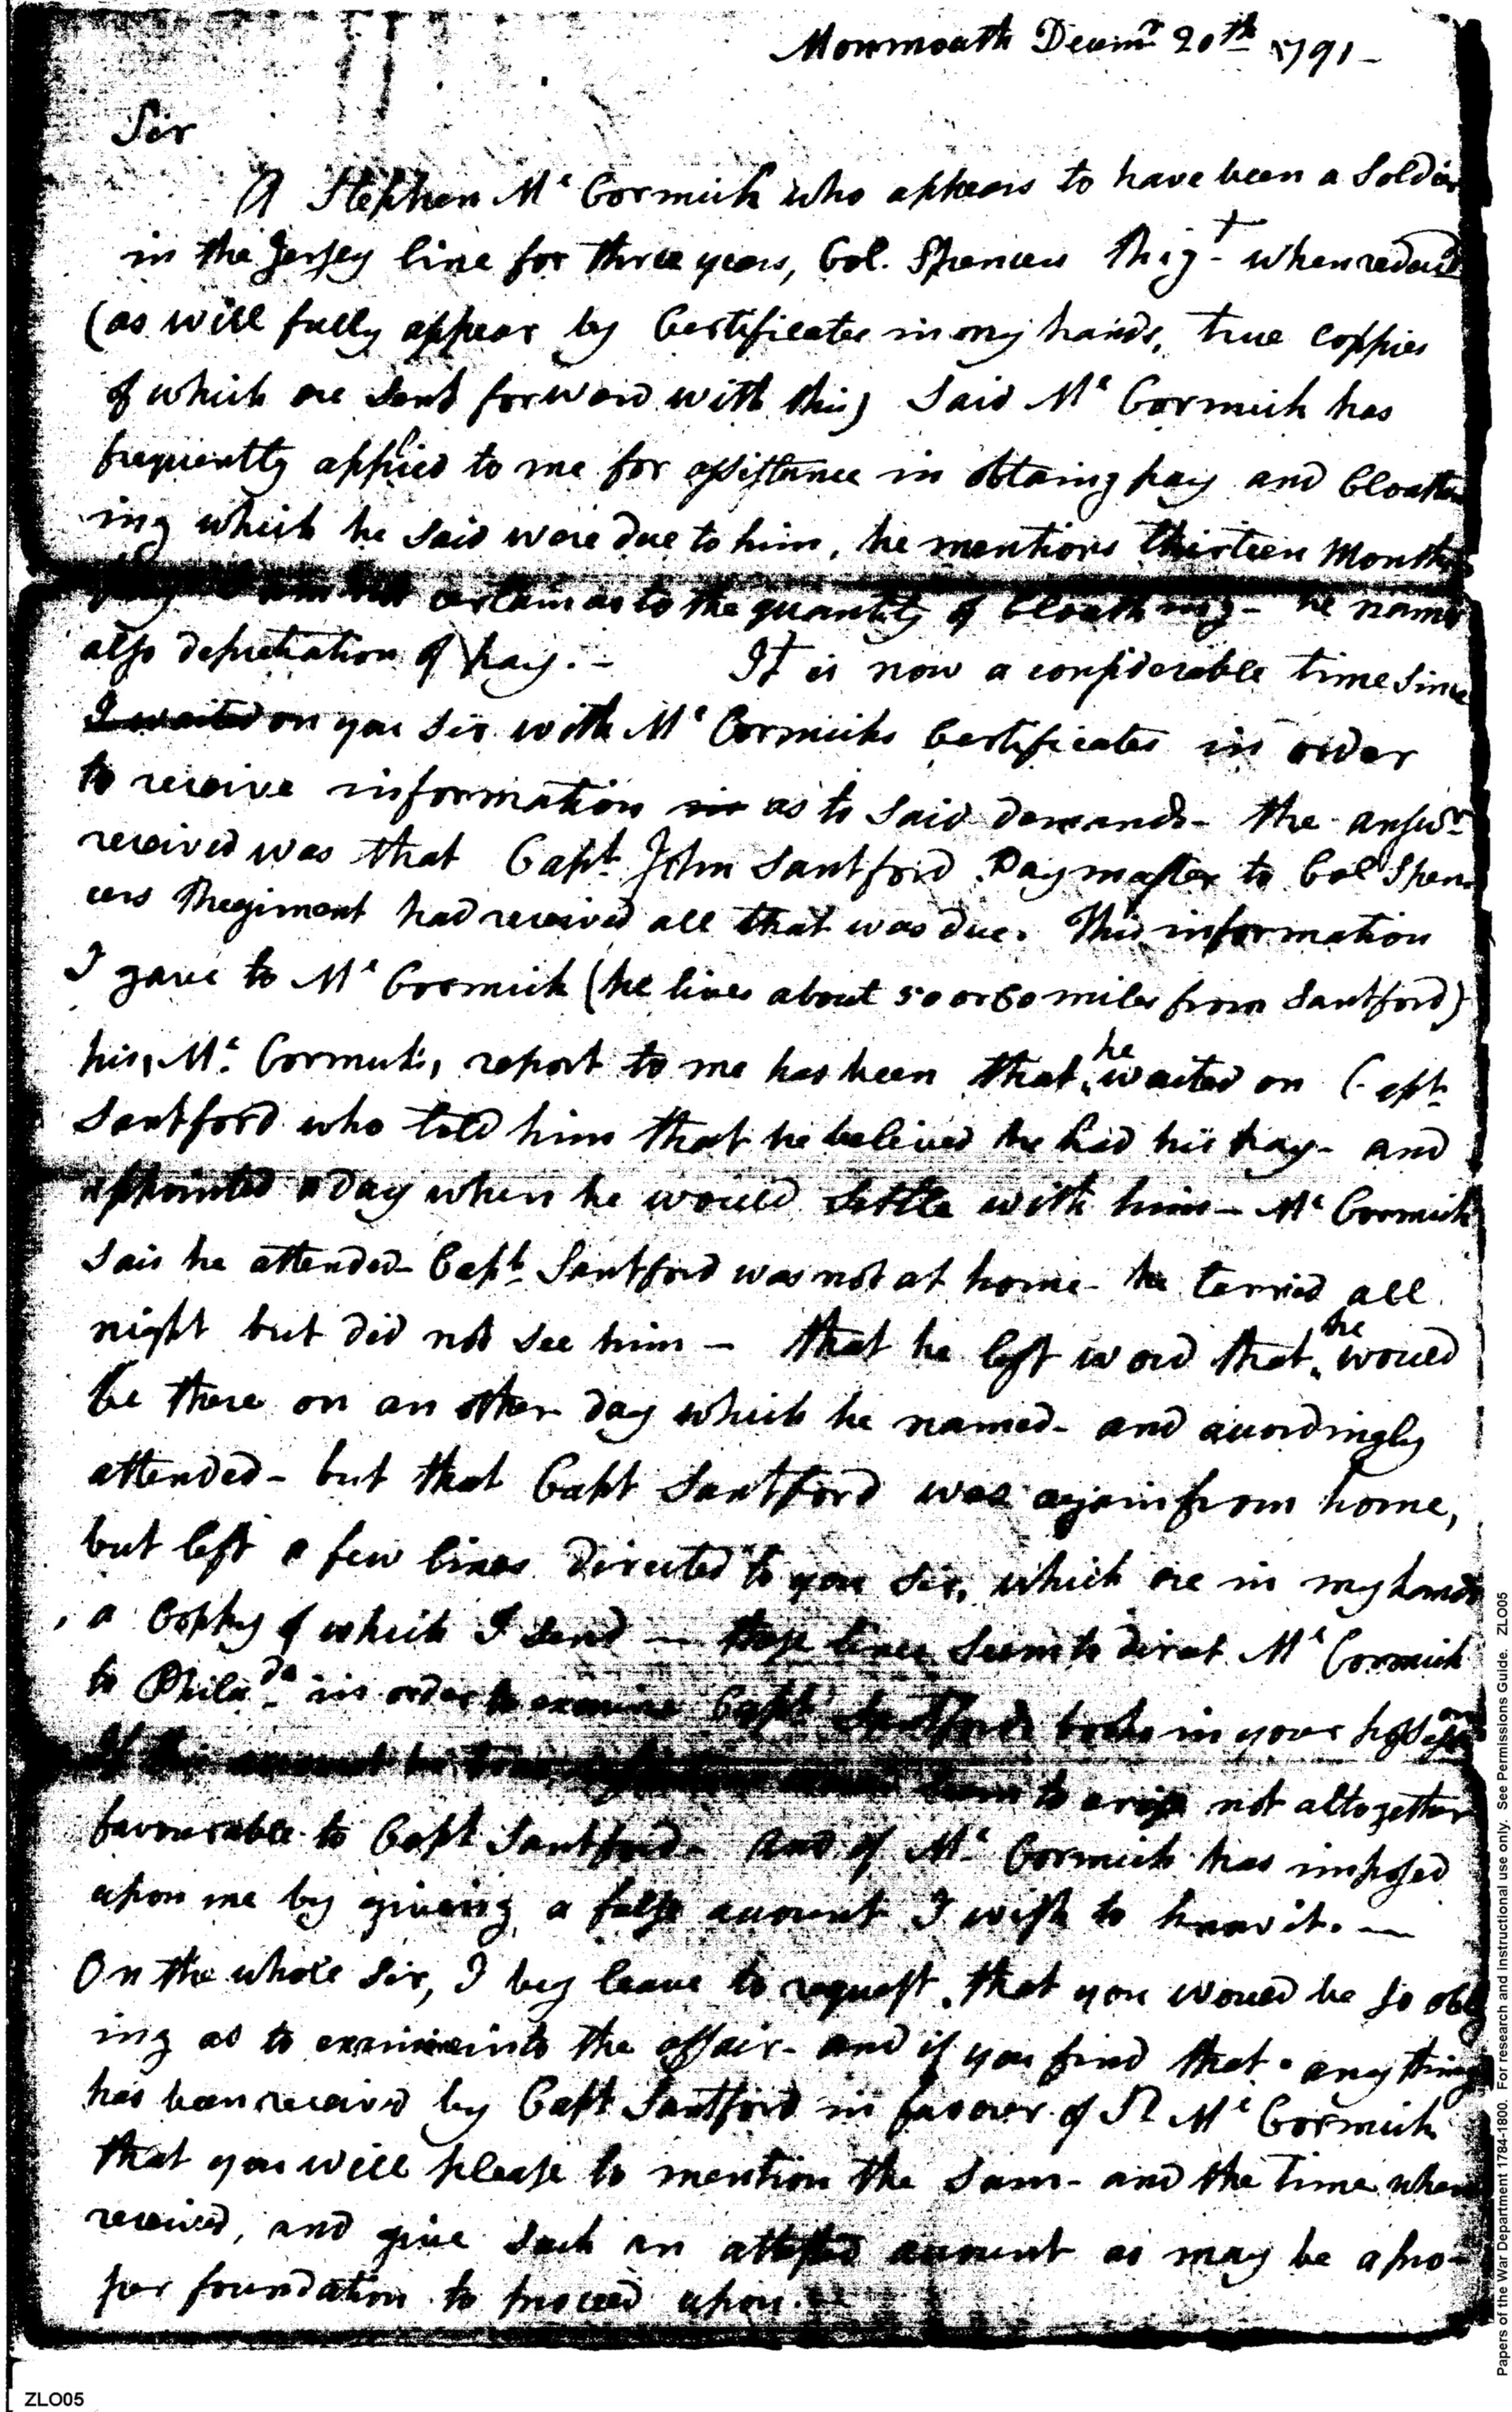 Monmouth Decemr 20th 1791-
Sir
A Stephen Mc Cormick who appears to have been a Soldier
in the Jersey line for three years, Col. Spencers Regt- when reduced
(as will fully appear by Certificates in my hands, true coppies
of which are sent forward with this) Said Mc Cormick has
frequently applied to me for assistance in obtaing pay and Cloath
ing which he said were due to him, he mentions thirteen Months
pay I am not certain as to the quantity of Cloathing- he names
also depretiation of pay.- It is now a considerable time since
I waited on you Sir with Mc Cormicks Certificates in order
to receive information as to said demands- the answr
received was that Capt. John Santford Paymaster to Col Spen
cers Regiment had received all that was due. This information
I gave to Mc Cormick (he lives about 50 or 60 miles from Santford)
his, Mc. Cormick's, report to me has been that he waited on Capt-
Santford who told him that he believed he had his pay- and
appointed a day when he would settle with him- Mc Cormick
said he attended- Capt. Santford was not at home- he terried all
night but did not see him- that he left word that he would
be there on an other day which he named- and accordingly
attended- but that Capt Santford was again from home,
but left a few lines directed to you Sir, which are in my hands
, a Coppy of which I send- these lines seem to direct Mc Cormick
to Philada- in order to examine Capt Santfords books in your possession
If this account be true to arise not altogether
favourable to Capt Santford- and if Mc. Cormick has imposed
upon me by giveing a false account I wish to know it.-
On the whole Sir, I beg leave to request that you would be so oblig
ing as to examine into the affair- and if you find that any thing
has been received by Capt Santford in favour of Sd Mc Cormick
that you will please to mention the Sum- and the time when
received, and give such an attested account as may be a pro-
per foundation to proceed upon.
Papers of the War Department 1784-1800. For research and instructional use only. See Permissions Guide. ZLO05
ZLO05